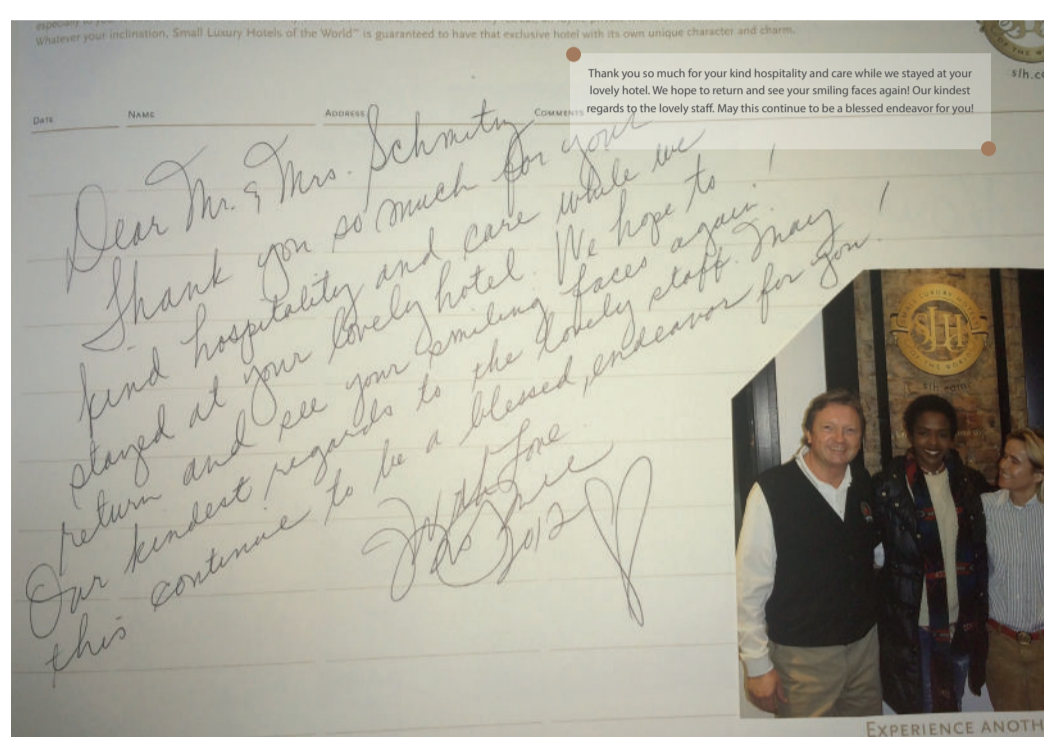 Whatever your inclination, Small Luxury Hotels of the World™ is guaranteed to have that exclusive hotel with its own unique character and charm.
OF THE
slh.co
Thank you so much for your kind hospitality and care while we stayed at your
lovely hotel. We hope to return and see your smiling faces again! Our kindest
regards to the lovely staff. May this continue to be a blessed endeavor for you!
DATE NAME ADDRESS COMMENTS
Dear Mr. & Mrs. Schmitz
Thank you so much for your
kind hospitality and care while we
stayed at your lovely hotel. We hope to
return and see your smiling faces again!
Our kindest regards to the lovely staff. May
this continue to be a blessed, endeavor for you!
With Love
2012
SMALL LUXURY HOTELS
SLH
OF THE WORLD
slh.com
EXPERIENCE ANOTH